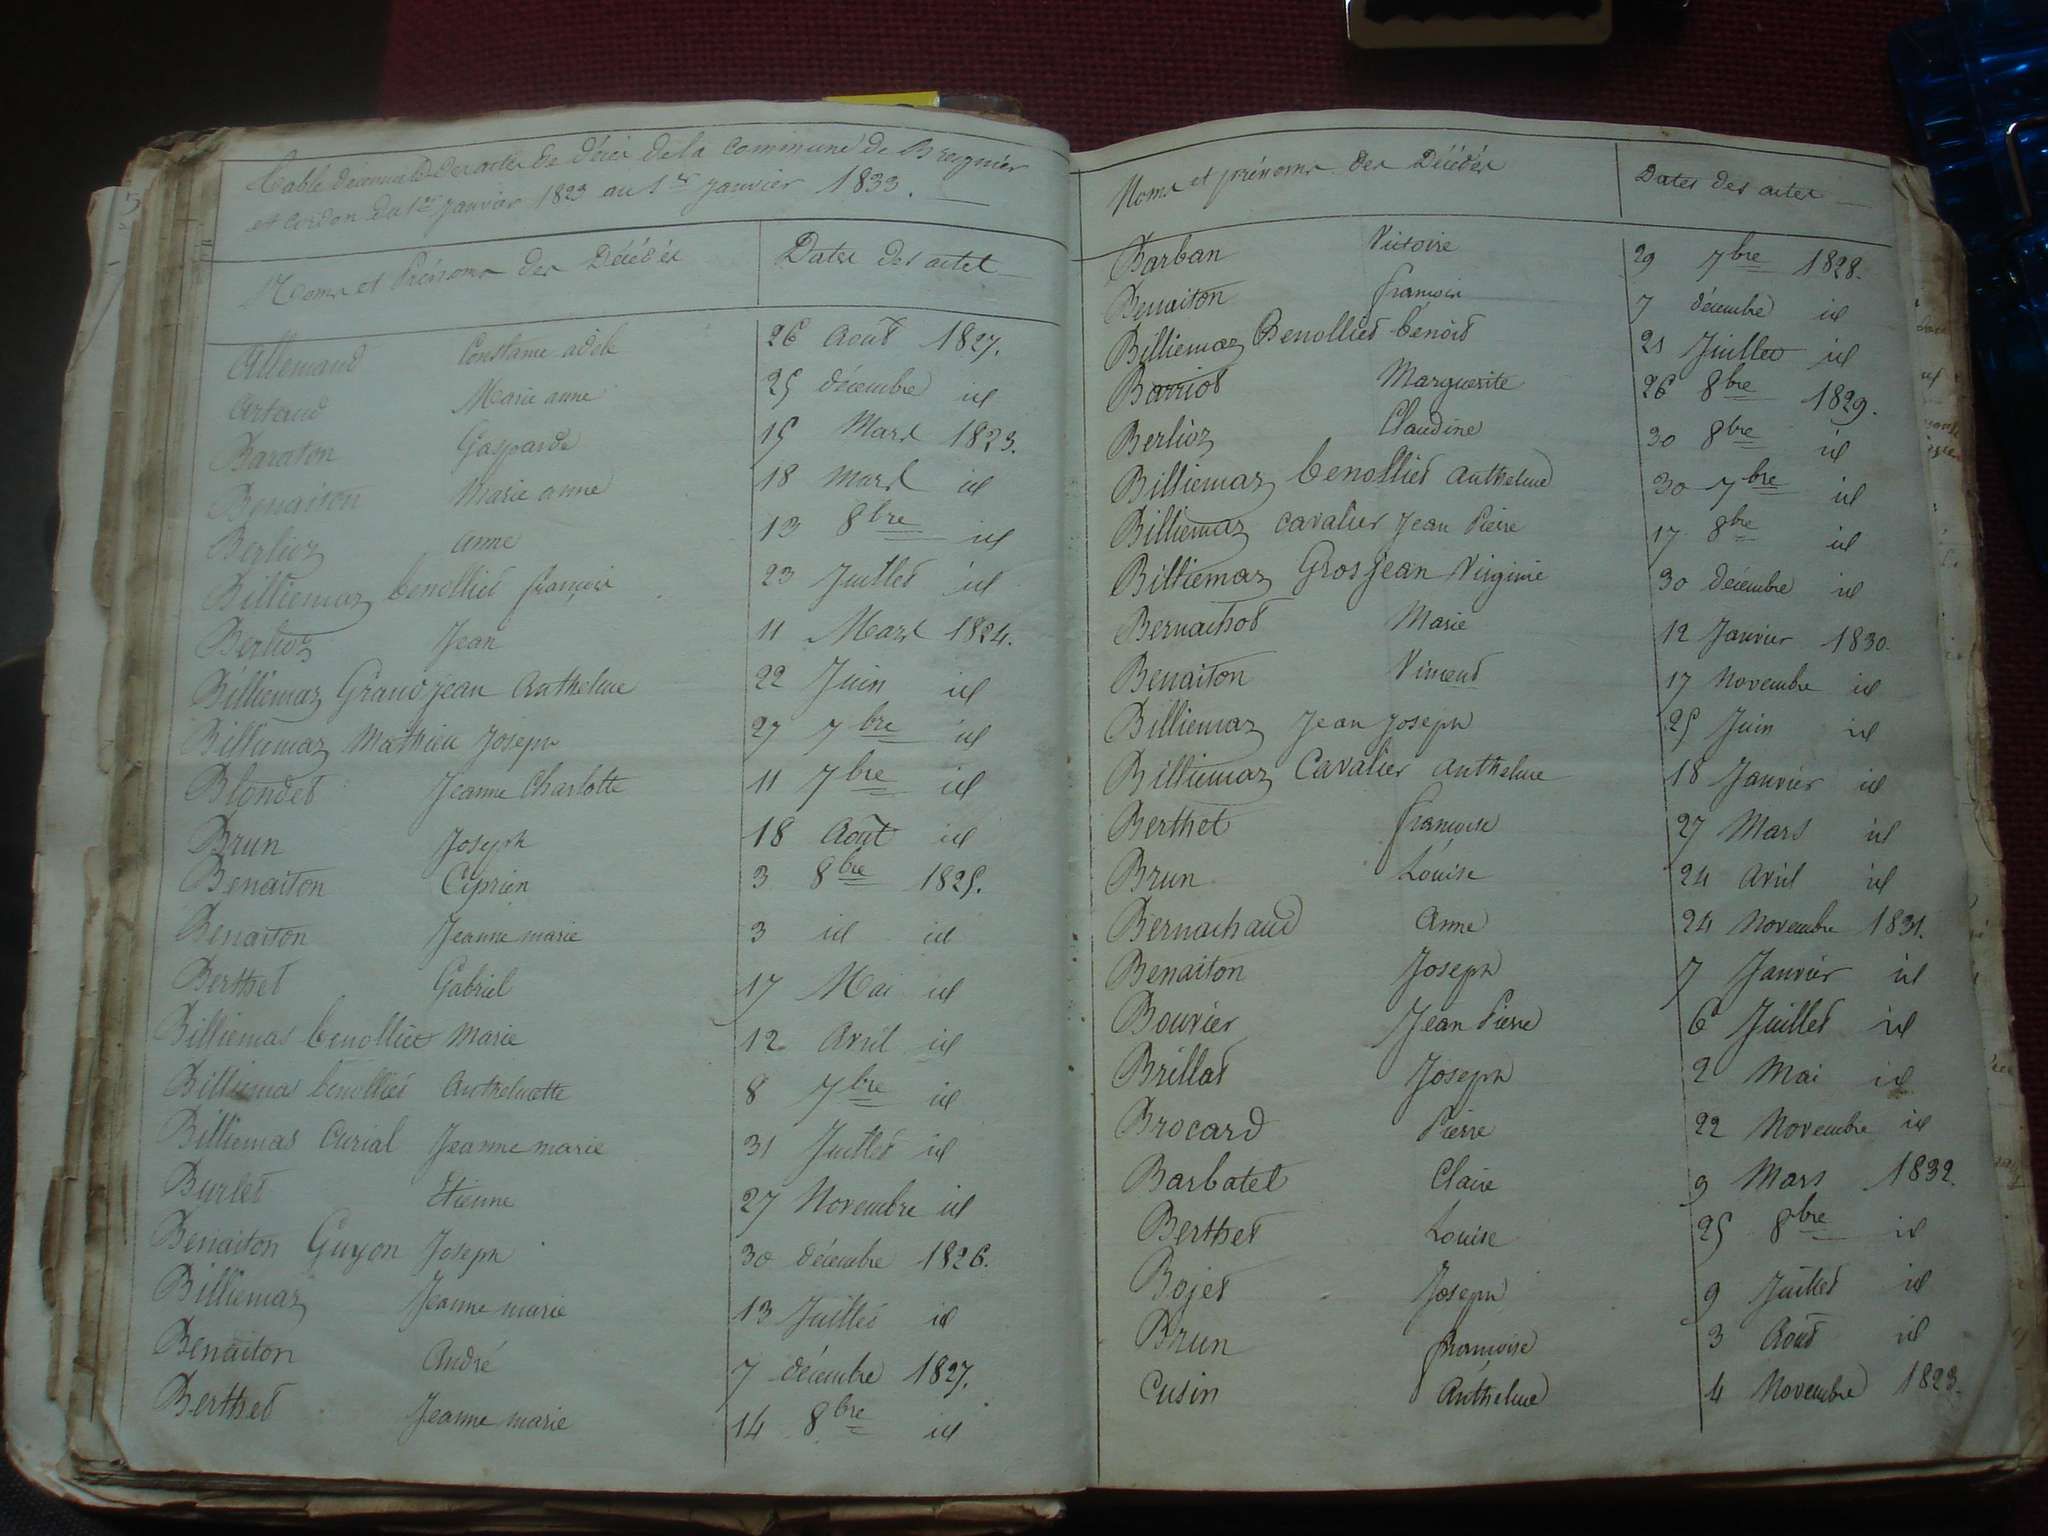 Table décennale des actes de décès de la Commune de Bregnier
et Cordon du 1er Janvier 1823 au 1er Janvier 1833.
Noms et Prénoms des Décédés Dates des actes
Allemand Constance adele 26 Août 1827.
Artaud Marie anne 25 décembre id
Baraton Gasparde 15 Mars 1823.
Benaiton Marie anne 18 Mars id
Berlioz anne 13 8bre id
Billiemaz benolliet françois 23 Juillet id
Berlioz Jean 11 Mars 1824.
Billiemaz Grandjean Anthelme 22 Juin id
Billiemaz Mathieu Joseph 27 7bre id
Blondet Jeanne Charlotte 11 7bre id
Brun Joseph 18 Août id
Benaiton Ciprien 3 8bre 1825.
Benaiton Jeanne marie 3 id id
Berthet Gabriel 17 Mai id
Billiemas benolliet Marie 12 Avril id
Billiemas benolliet Anthelmette 8 7bre id
Billiemas Curial Jeanne marie 31 Juillet id
Burlet Etienne 27 Novembre id
Benaiton Guyon Joseph 30 décembre 1826.
Billiemaz Jeanne marie 13 Juillet id
Benaiton André 7 décembre 1827.
Berthet Jeanne marie 14 8bre id
Noms et prénoms des Décédés Dates des actes
Barban Victoire 29 7bre 1828.
Benaiton francois 7 décembre id
Billiemaz Benolliet benoit 21 Juillet id
Barriot Marguerite 26 8bre 1829.
Berlioz Claudine 30 8bre id
Billiemaz benolliet anthelme 30 7bre id
Billiemaz cavalier Jean Pierre 17 8bre id
Billiemaz GrosJean Virginie 30 décembre id
Bernachot Marie 12 Janvier 1830.
Benaiton Vincent 17 Novembre id
Billiemaz Jean Joseph 25 Juin id
Billiemaz Cavalier anthelme 18 Janvier id
Berthet francoise 27 Mars id
Brun Louise 24 Avril id
Bernachaud Anne 24 Novembre 1831.
Benaiton Joseph 7 Janvier id
Bouvier Jean Pierre 6 Juillet id
Brillat Joseph 2 Mai id
Brocard Pierre 22 Novembre id
Barbatet Claire 9 Mars 1832.
Berthet Louise 25 8bre id
Bojet Joseph 9 Juillet id
Brun francoise 3 Août id
Cusin Anthelme 4 Novembre 1823.